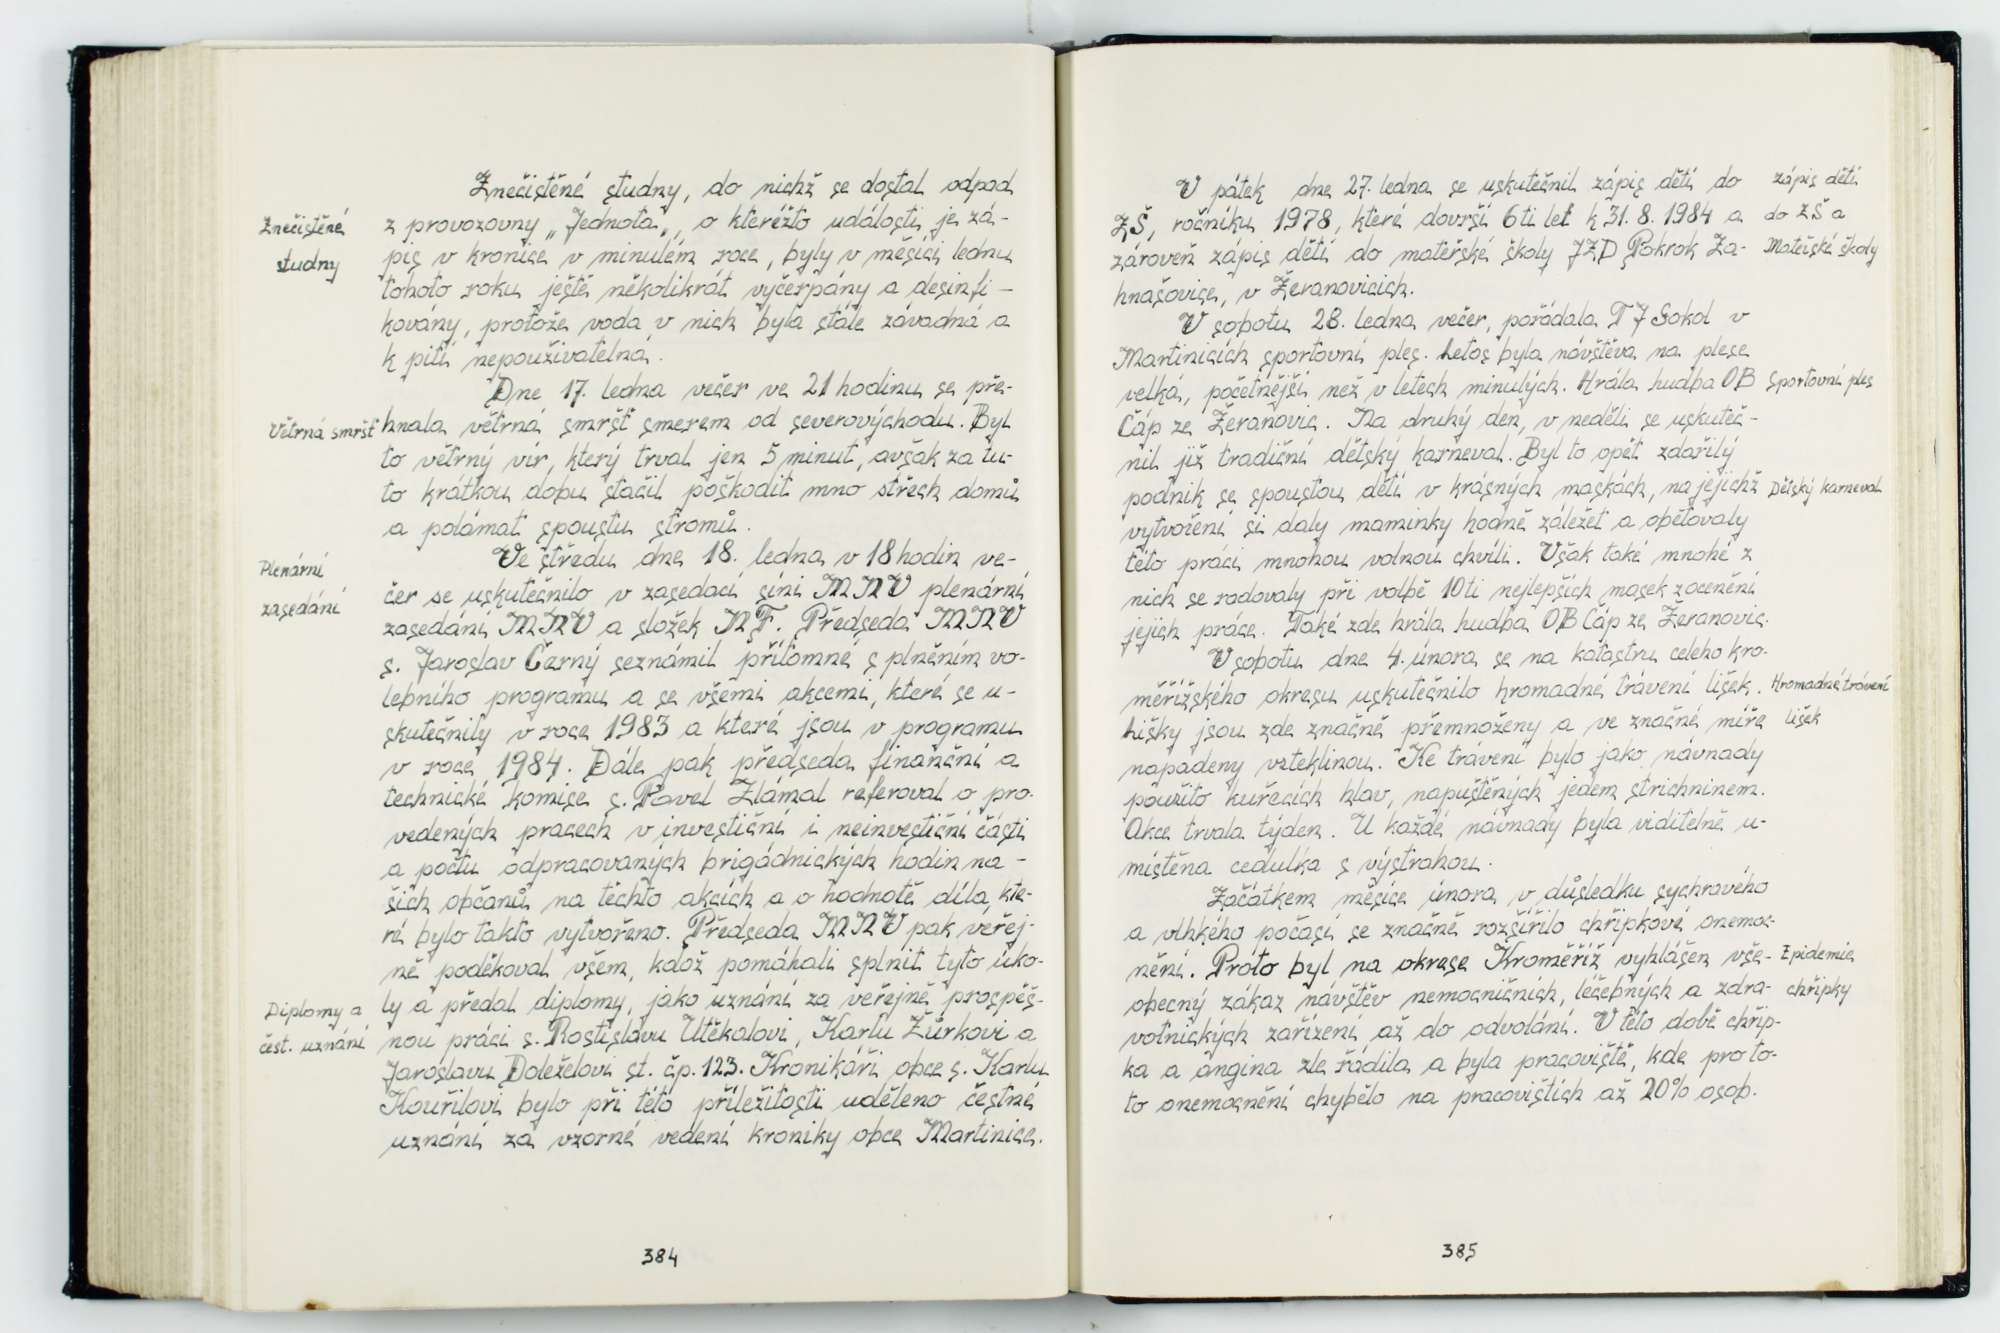 Znečistěné studny, do nichž se dostal odpad
Znečistěné
studny
z provozovny „Jednota„, o kteréžto události je zá-
pis v kronice v minulém roce, byly v měsíci lednu
tohoto roku ještě několikrát vyčerpány a desinfi-
kovány, protože voda v nich byla stále závadná a
k pití nepouživatelná.
Dne 17. ledna večer ve 21 hodinu se pře-
Větrná smršť
hnala větrná smršť smerem od severovýchodu. Byl
to větrný vír, který trval jen 5 minut, avšak za tu-
to krátkou dobu stačil poškodit mno střech domů
a polámat spoustu stromů.
Ve středu dne 18. ledna v 18 hodin ve-
Plenární
zasedání
čer se uskutečnilo v zasedací síni MNV plenární
zasedání MNV a složek NF. Předseda MNV
s. Jaroslav Černý seznámil přítomné s plněním vo-
lebního programu a se všemi akcemi, které se u-
skutečnily v roce 1983 a které jsou v programu
v roce 1984. Dále pak předseda finanční a
technické komise s. Pavel Zlámal referoval o pro-
vedených pracech v investiční i neinvestiční části
a počtu odpracovaných brigádnických hodin na-
šich občanů na těchto akcích a o hodnotě díla, kte-
ré bylo takto vytvořeno. Předseda MNV pak veřej-
ně poděkoval všem, kdož pomáhali splnit tyto úko-
Diplomy a
čest. uznání
ly a předal diplomy, jako uznání za veřejně prospěš-
nou práci s. Rostislavu Utěkalovi, Karlu Žůrkovi a
Jaroslavu Doleželovi st. čp. 123. Kronikáři obce s. Karlu
Kouřilovi bylo při této příležitosti uděleno čestné
uznání za vzorné vedení kroniky obce Martinice.
384
V pátek dne 27. ledna se uskutečnil zápis dětí do
ZŠ, ročníku 1978, které dovrší 6ti let k 31. 8. 1984 a
zároveň zápis dětí do mateřské školy JZD Pokrok Za-
hnašovice, v Žeranovicích.
zápis dětí
do ZŠ a
Mateřské školy
V sobotu 28. ledna večer, pořádala TJ Sokol v
Martinicích sportovní ples. Letos byla návštěva na plese
velká, početnější než v letech minulých. Hrála hudba OB
Sportovní ples
Čáp ze Žeranovic. Na druhý den, v neděli se uskuteč-
nil již tradiční dětský karneval. Byl to opět zdařilý
podnik se spoustou dětí v krásných maskách, na jejichž
Dětský karneval
vytvoření si daly maminky hodně záležet a obětovaly
této práci mnohou volnou chvíli. Však také mnohé z
nich se radovaly při volbě 10ti nejlepších masek zocenění
jejich práce. Také zde hrála hudba OB Čáp ze Žeranovic.
V sobotu dne 4. února se na katastru celeho kro-
měřížského okresu uskutečnilo hromadné trávení lišek.
Hromadné trávení
lišek
Lišky jsou zde značně přemnoženy a ve značné míře
napadeny vzteklinou. Ke trávení bylo jako návnady
použito kuřecích hlav, napuštěných jedem strichninem.
Akce trvala týden. U každé návnady byla viditelně u-
místěna cedulka s výstrahou.
Začátkem měsíce února v důsledku sychravého
a vlhkého počasí se značně rozšířilo chřipkové onemoc-
nění. Proto byl na okrese Kroměříž vyhlášen vše-
Epidemie
chřipky
obecný zákaz návštěv nemocničních, léčebných a zdra-
votnických zařízení až do odvolání. V této době chřip-
ka a angina zle řádila a byla pracoviště, kde pro to-
to onemocnění chybělo na pracovištích až 20% osob.
385